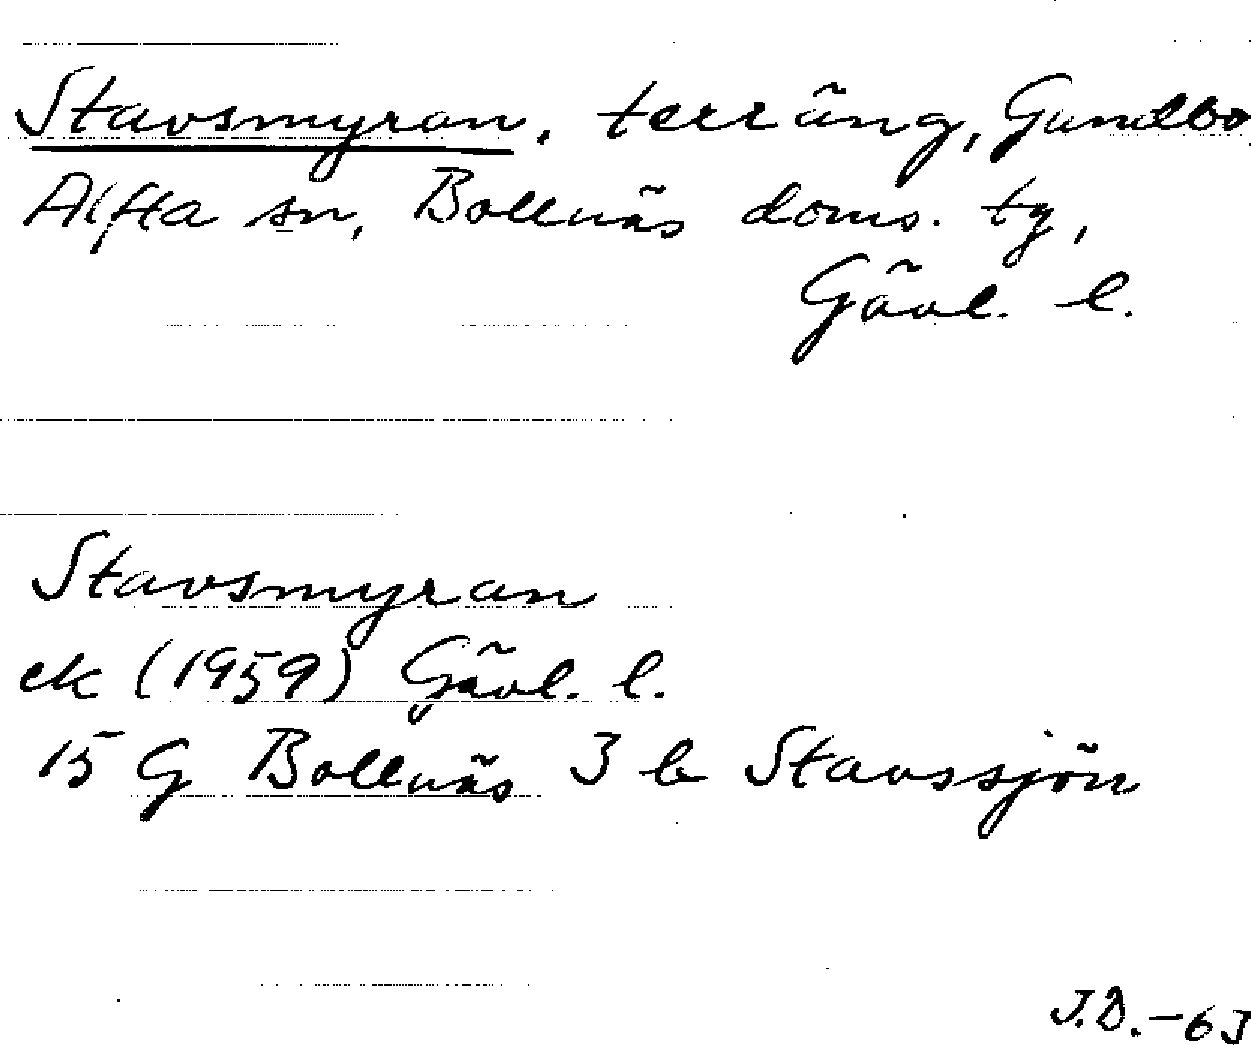 Stavsmyran, terräng, Gundbo
Alfta sn, Bollnäs doms. tg,
Gävl. l.
Stavsmyran
ek (1959) Gävl. l.
15 G Bollnäs 3 b Stavssjön
J.D.-63